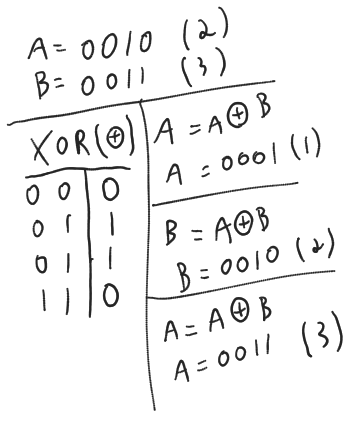 A = 0010 (2)
B = 0011 (3)
XOR(⊕)
0 0 0
0 1 1
0 1 1
1 1 0
A = A ⊕ B
A = 0001 (1)
B = A⊕B
B = 0010 (2)
A = A ⊕ B
A = 0011 (3)